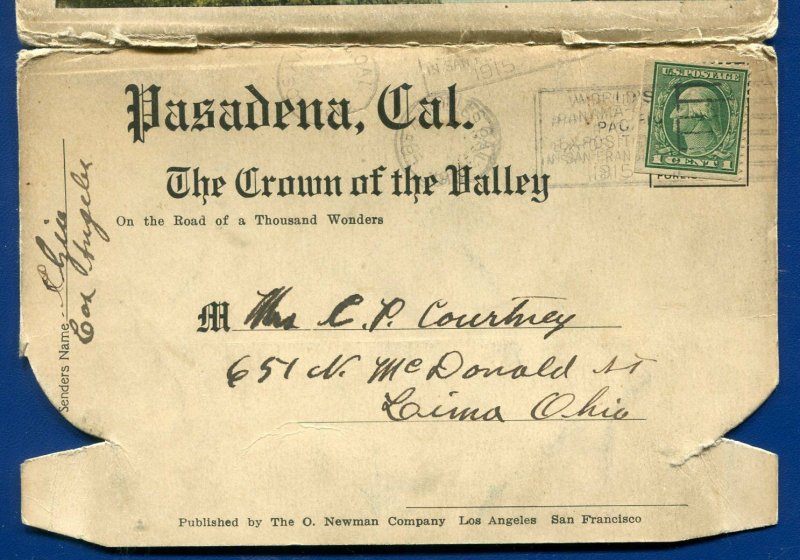 1915
Pasadena, Cal.
The Crown of the Valley
On the Road of a Thousand Wonders
WORLD'S
PANAMA
PAC
EXPOSIT
IN SAN FRAN
1915
U.S. POSTAGE
1 CENT 1
Senders Name
Los Angeles
M Mrs C. P. Courtney
651 N. McDonald St
Lima Ohio
Published by The O. Newman Company Los Angeles San Francisco